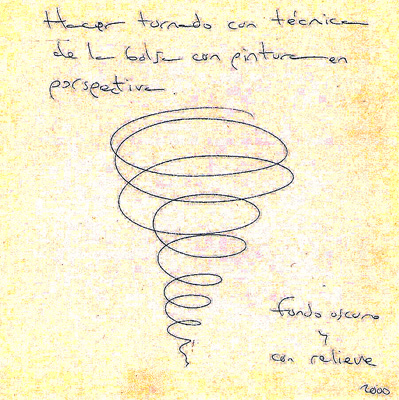 Hacer tornado con técnica
de la bolsa con pintura en
perspectiva.
fondo oscuro
y
con relieve
2000